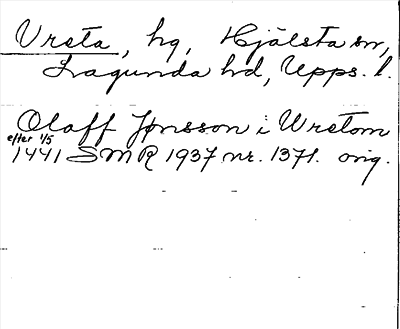 Vreta, hg, Hjälsta sn,
Lagunda hd, Upps. l.
Olaff Jonsson i Wretom
efter 1/5
1441 SMR 1937 nr. 1371. orig.